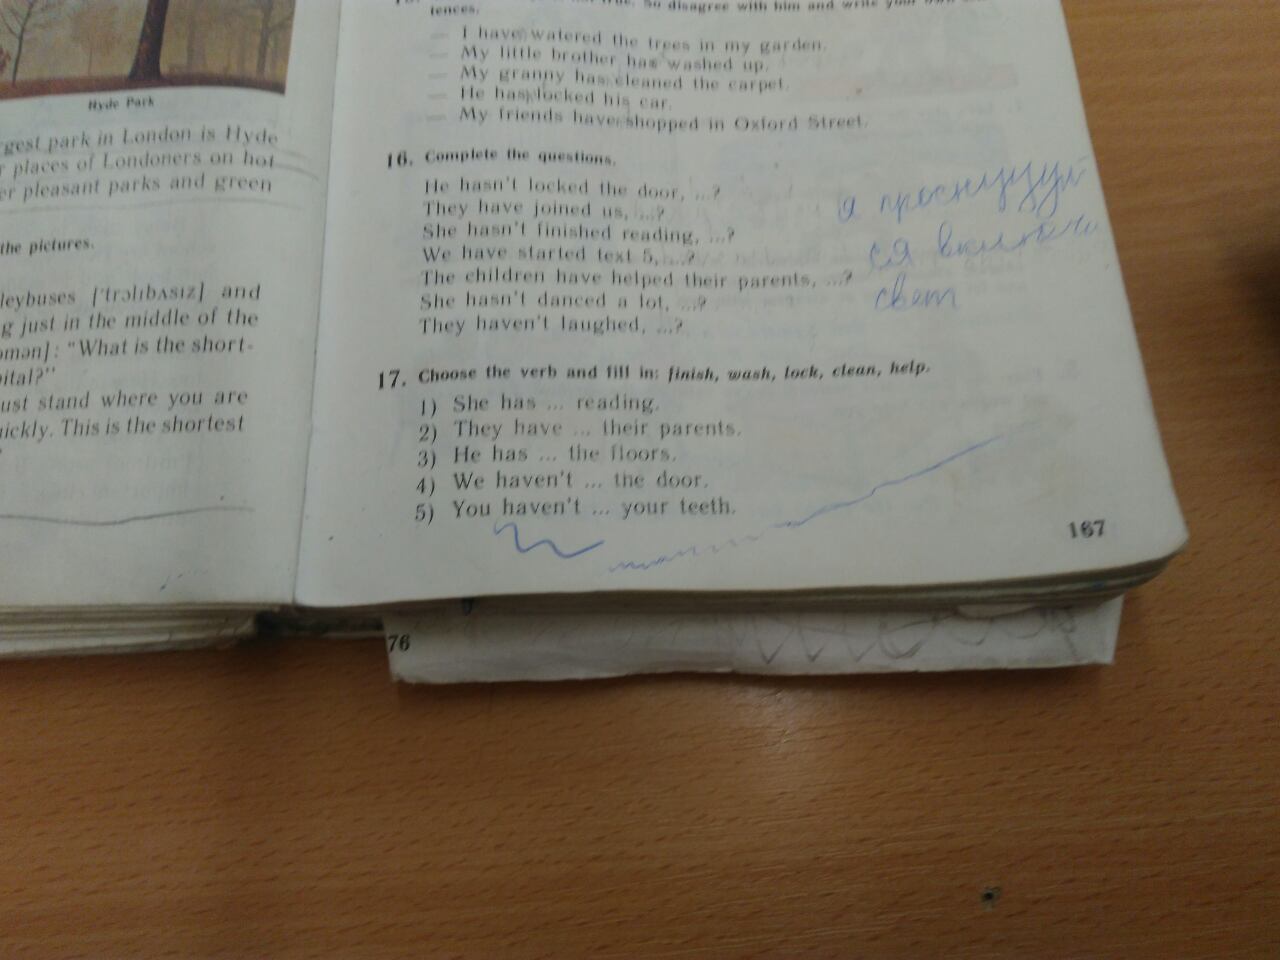 Hyde Park
rgest park in London is Hyde
r places of Londoners on hot
er pleasant parks and green
the pictures.
leybuses ['trɔlıbʌsız] and
g just in the middle of the
omən]: “What is the short-
ital?”
ust stand where you are
uickly. This is the shortest
true. So disagree with him and write your own
tences.
— I have watered the trees in my garden.
— My little brother has washed up.
— My granny has cleaned the carpet.
— He has locked his car.
— My friends have shopped in Oxford Street.
16. Complete the questions.
He hasn't locked the door, ...?
They have joined us, ...?
She hasn't finished reading, ...?
We have started text 5, ...?
The children have helped their parents, ...?
She hasn't danced a lot, ...?
They haven't laughed, ...?
я
ся
свет
17. Choose the verb and fill in: finish, wash, lock, clean, help.
1) She has ... reading.
2) They have ... their parents.
3) He has ... the floors.
4) We haven't ... the door.
5) You haven't ... your teeth.
167
76